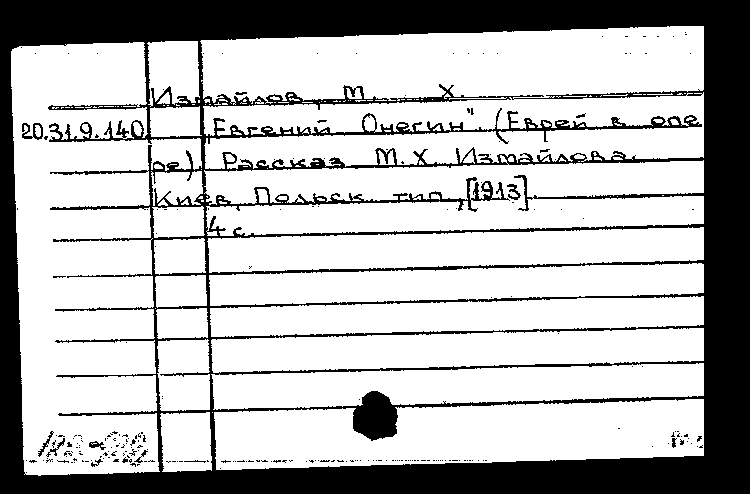 Измайлов, М. Х.
20.31.9.140 „Евгений Онегин". (Еврей в опе
ре). Рассказ М. Х. Измайлова.
Киев, Польск. тип., [1913].
4 с.